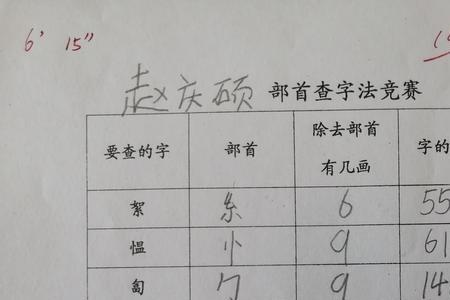 6' 15"
赵庆硕 部首查字法竞赛
要查的字 部首 除去部首有几画 字的
絮 糸 6 55
愠 忄 9 61
匐 勹 9 14